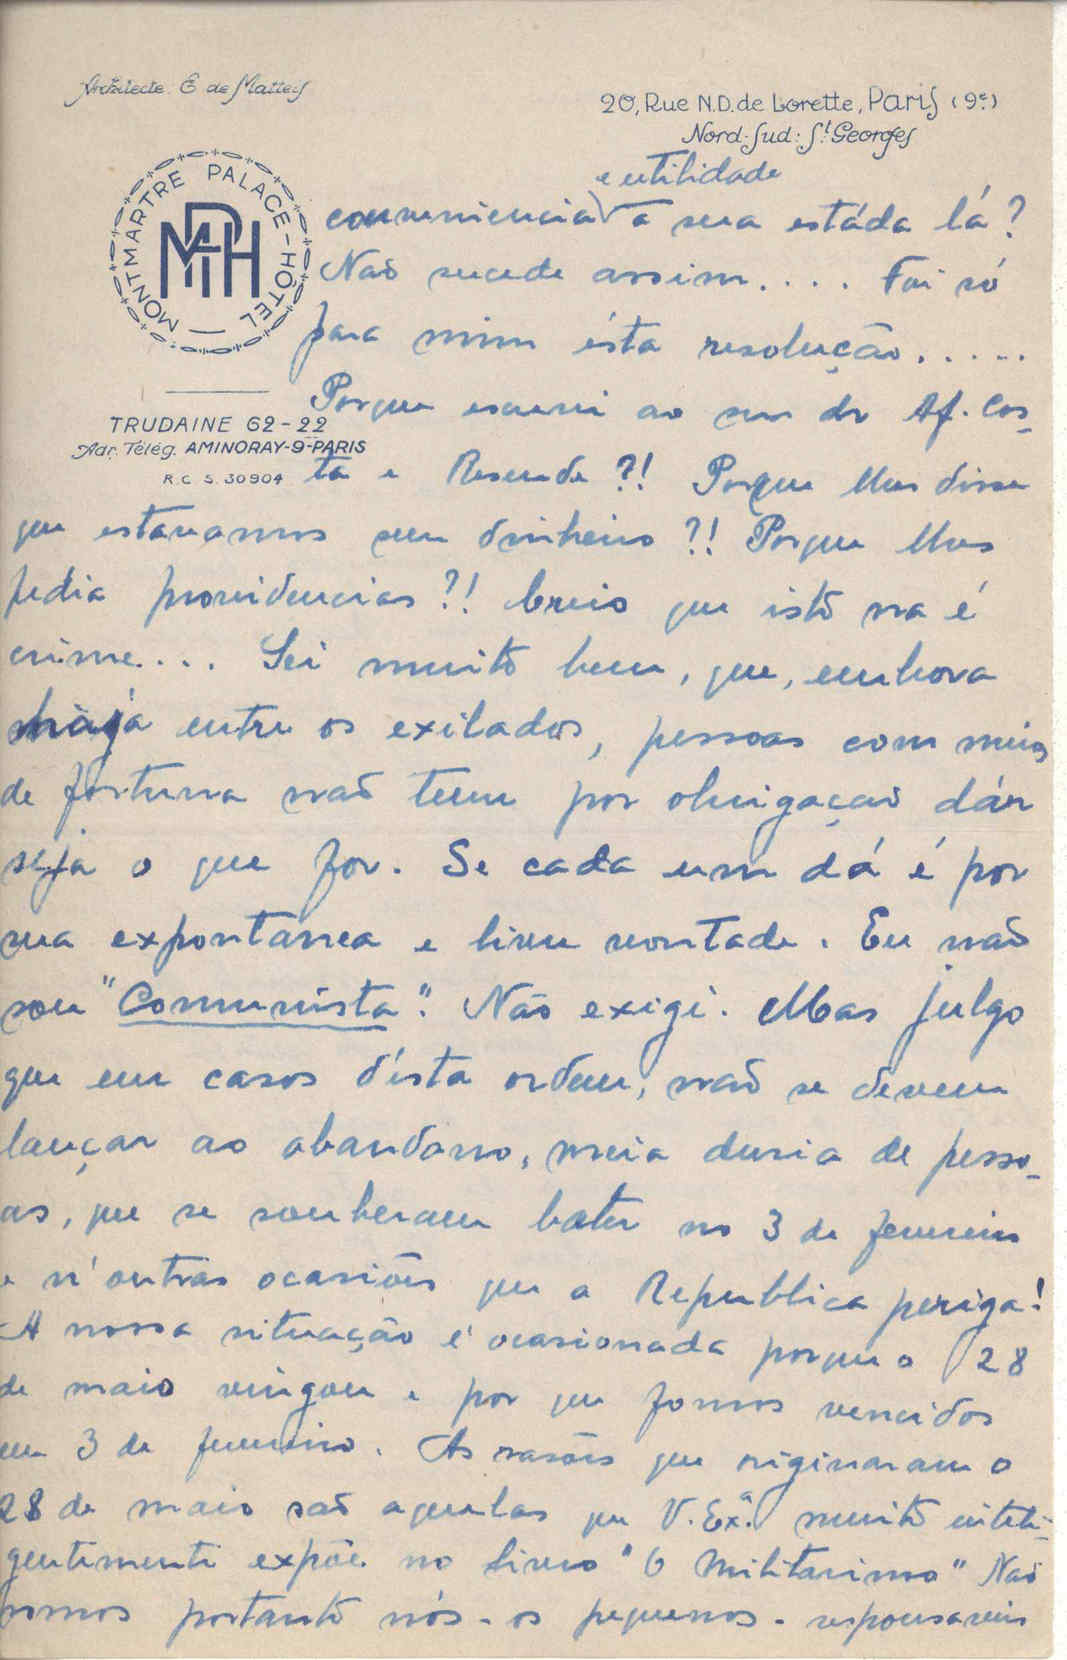 Architecte. E de Matteis
20, Rue N.D. de Lorette, Paris (9e)
Nord-Sud: St Georges
MONTMARTRE PALACE-HÔTEL
MPH
TRUDAINE 62-22
Adr. Télég. AMINORAY-9-PARIS
R.C S. 30904
e utilidade
conveniencia a sua estáda lá?
Naõ sucede assim.... Foi só
para mim ésta resolução.....
Porque escrevi ao snr dr Af. Cos-
ta e Resende?! Porque lhes disse
que estavamos sem dinheiro?! Porque lhes
pedia providencias?! Creio que istó na é
crime.... Sei muito bem, que, embora
hája entre os exilados, pessoas com meios
de fortuna naõ teem por obrigaçaõ dár
seja o que for. Se cada um dá é por
sua expontanea e livre vontade. Eu naõ
sou "Comunista". Não exigi. Mas julgo
que em casos d'ésta ordem, naõ se devem
lançar ao abandono, meia dusia de pesso-
as, que se souberam bater no 3 de fevereiro
e n'outras ocasiões que a Republica periga!
A nossa situação é ocasionada porque o 28
de maio vingou e por que fomos vencidos
em 3 de fevereiro. As rasões que originaram o
28 de maio saõ aquelas que V. Exª. muito inteli-
gentemente expõe no livro "O Militarismo" Naõ
somos portanto nós - os pequenos - responsaveis